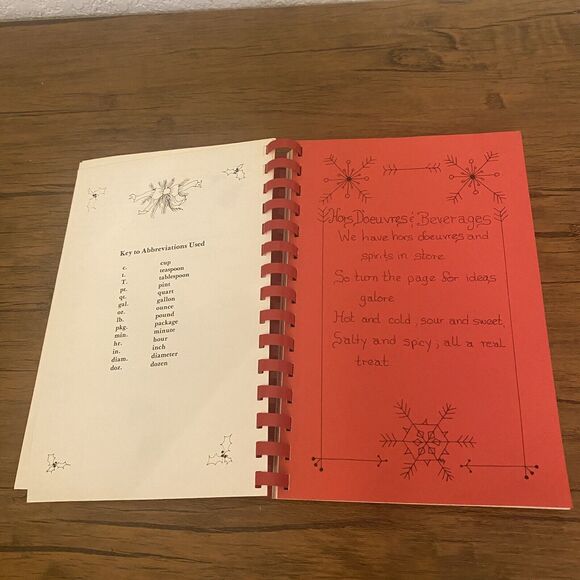 Key to Abbreviations Used
c. cup
t. teaspoon
T. tablespoon
pt. pint
qt. quart
gal. gallon
oz. ounce
lb. pound
pkg. package
min. minute
hr. hour
in. inch
diam. diameter
doz. dozen
Hors Doeuvres & Beverages
We have hors doeuvres and
spirits in store
So turn the page for ideas
galore
Hot and cold, sour and sweet,
Salty and spicy, all a real
treat